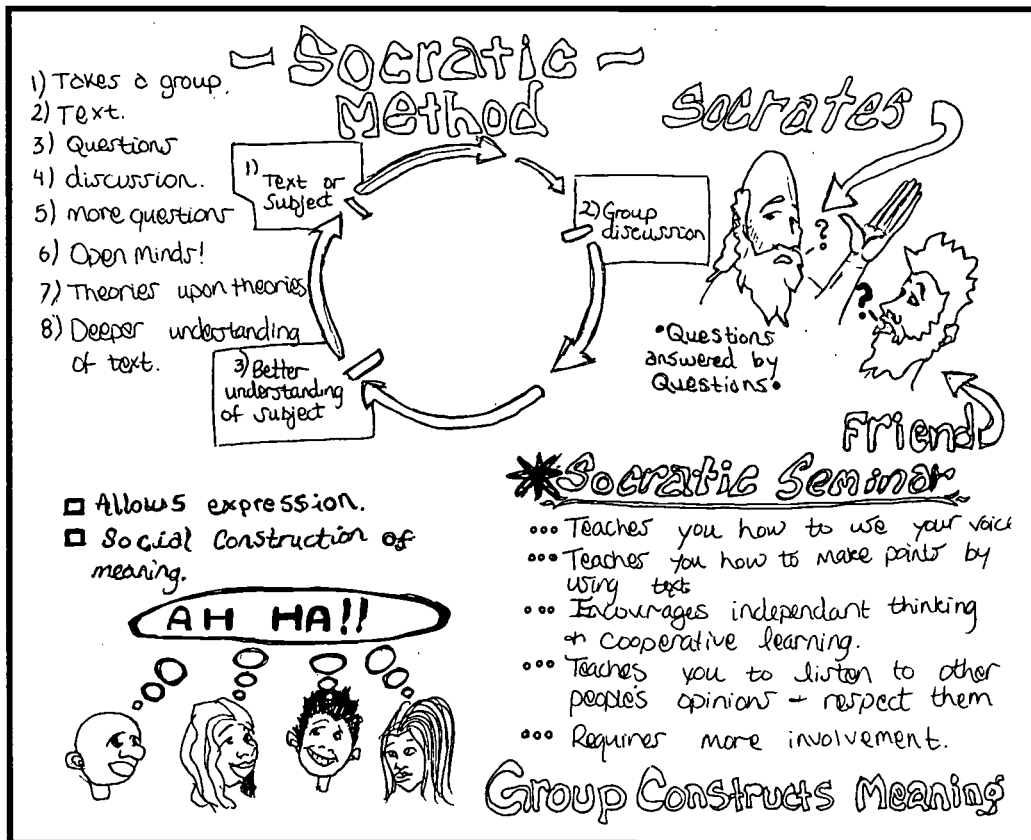 ~ Socratic ~
Method
1) Takes a group.
2) Text.
3) Questions
4) discussion.
5) more questions
6) Open Minds!
7) Theories upon theories
8) Deeper understanding
of text.
1)
Text or
Subject
2) Group
discussion
3) Better
understanding
of subject
Socrates
?
?
•Questions
answered by
Questions•
Friend
□ Allows expression.
□ Social Construction of
meaning.
AH HA!!
Socratic Seminar
... Teaches you how to use your voice
... Teaches you how to make points by
using text
... Encourages independant thinking
+ cooperative learning.
... Teaches you to listen to other
people's opinions + respect them
... Requires more involvement.
Group Constructs Meaning